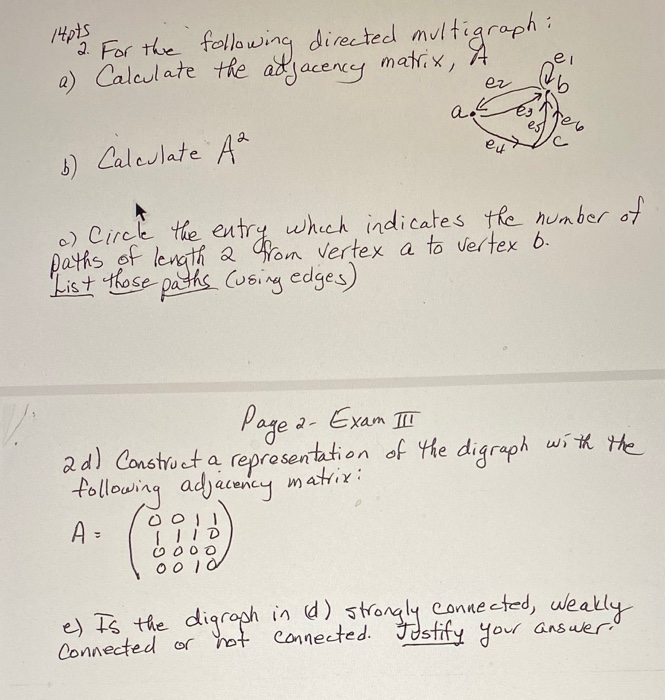 14pts
2. For the following directed multigraph:
a) Calculate the adjacency matrix, A
e1
e2
b
a
e3
e5
e6
e4
c
b) Calculate A²
c) Circle the entry which indicates the number of
paths of length 2 from vertex a to vertex b.
List those paths (using edges)
Page 2 - Exam III
2d) Construct a representation of the digraph with the
following adjacency matrix:
A =
0 0 1 1
1 1 1 0
0 0 0 0
0 0 1 0
e) Is the digraph in (d) strongly connected, weakly
connected or not connected. Justify your answer.